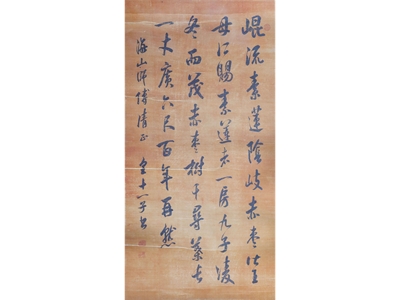 崐流素蓮陰歧赤枣世王
母口賜素蓮玄一房九子凌
冬而茂赤枣樹千尋葉長
一丈廣六尺百年再熟
海山師傅清正
皇十一子書